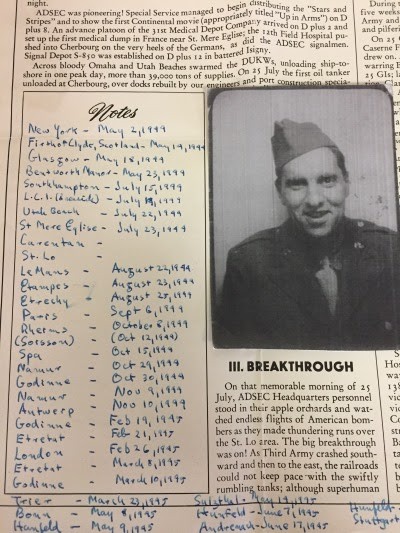 night.
ADSEC was pioneering! Special Service managed to begin distributing the "Stars and
Stripes" and to show the first Continental movie (appropriately titled "Up in Arms") on D
plus 8. An advance platoon of the 31st Medical Depot Company arrived on D plus 2 and
set up the first medical dump in France near St. Mere Eglise; the 12th Field Hospital pu-
shed into Cherbourg on the very heels of the Germans, as did the ADSEC signalmen.
Signal Depot S-850 was established on D plus 12 in battered Isigny.
Across bloody Omaha and Utah Beaches swarmed the DUKWs, unloading ship-to-
shore in one peak day, more than 39,000 tons of supplies. On 25 July the first oil tanker
unloaded at Cherbourg, over docks rebuilt by our engineers and port construction specia-
Notes
New York - May 2, 1944
Firth of Clyde, Scotland - May 14, 1944
Glasgow - May 18, 1944
Bentworth Manor - May 25, 1944
Southhampton - July 15, 1944
L.C.I. - July 1944
Utah Beach - July 22, 1944
St Mere Eglise - July 23, 1944
Carentan -
St. Lo -
LeMans - August 22, 1944
Etampes - August 23, 1944
Etrechy - August 25, 1944
Paris - Sept 6, 1944
Rheims - October 8, 1944
(Soissons) - (Oct 12, 1944)
Spa - Oct 15, 1944
Namur - Oct 29, 1944
Godinne - Oct 30, 1944
Namur - Nov 9, 1944
Antwerp - Nov 10, 1944
Godinne - Feb 19, 1945
Etretat - Feb 21, 1945
London - Feb 26, 1945
Etretat - March 8, 1945
Godinne - March 10, 1945
Trier - March 23, 1945
Bonn - May 8, 1945
Hunfeld - May 9, 1945
May 14, 1945
Hunfeld - June 7, 1945
Andernach - June 17, 1945
Hunfeld -
Stuttgart
III. BREAKTHROUGH
On that memorable morning of 25
July, ADSEC Headquarters personnel
stood in their apple orchards and wat-
ched endless flights of American bom-
bers as they made thundering runs over
the St. Lo area. The big breakthrough
was on! As Third Army crashed south-
ward and then to the east, the railroads
could not keep pace with the swiftly
rumbling tanks; although superhuman
On
during t
five weeks
Army and
and pilferi
On 25
Caserne F
drew on.
warring E
25 GIs; la